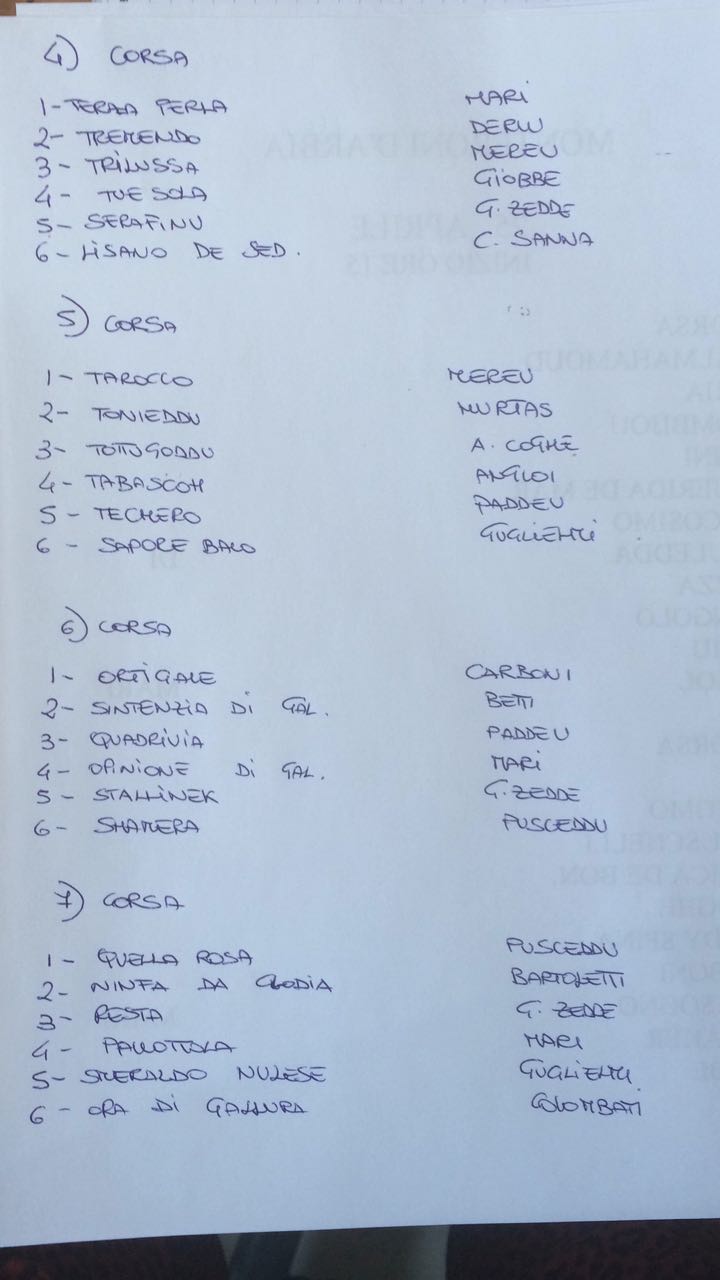 4) CORSA
1- TERZA PERLA MARI
2- TREMENDO DERIU
3- TRILUSSA MEREU
4- TUE SOLA GIOBBE
5- SERAFINU G. ZEDDE
6- LISANO DE SED. C. SANNA
5) CORSA
1- TAROCCO MEREU
2- TONIEDDU MURTAS
3- TOTTUGODDU A. COGHE
4- TABASCOH ANGIOI
5- TECHERO PADDEU
6- SAPORE BALO GUGLIELMI
6) CORSA
1- ORTIGALE CARBONI
2- SINTENZIA DI GAL. BETTI
3- QUADRIVIA PADDEU
4- OPINIONE DI GAL. MARI
5- STALLINEK G. ZEDDE
6- SHAMERA PUSCEDDU
7) CORSA
1- QUELLA ROSA PUSCEDDU
2- NINFA DA CLODIA BARTOLETTI
3- RESTA G. ZEDDE
4- PALLOTTOLA MARI
5- SMERALDO NULESE GUGLIELMI
6- ORA DI GALLURA COLOMBATI